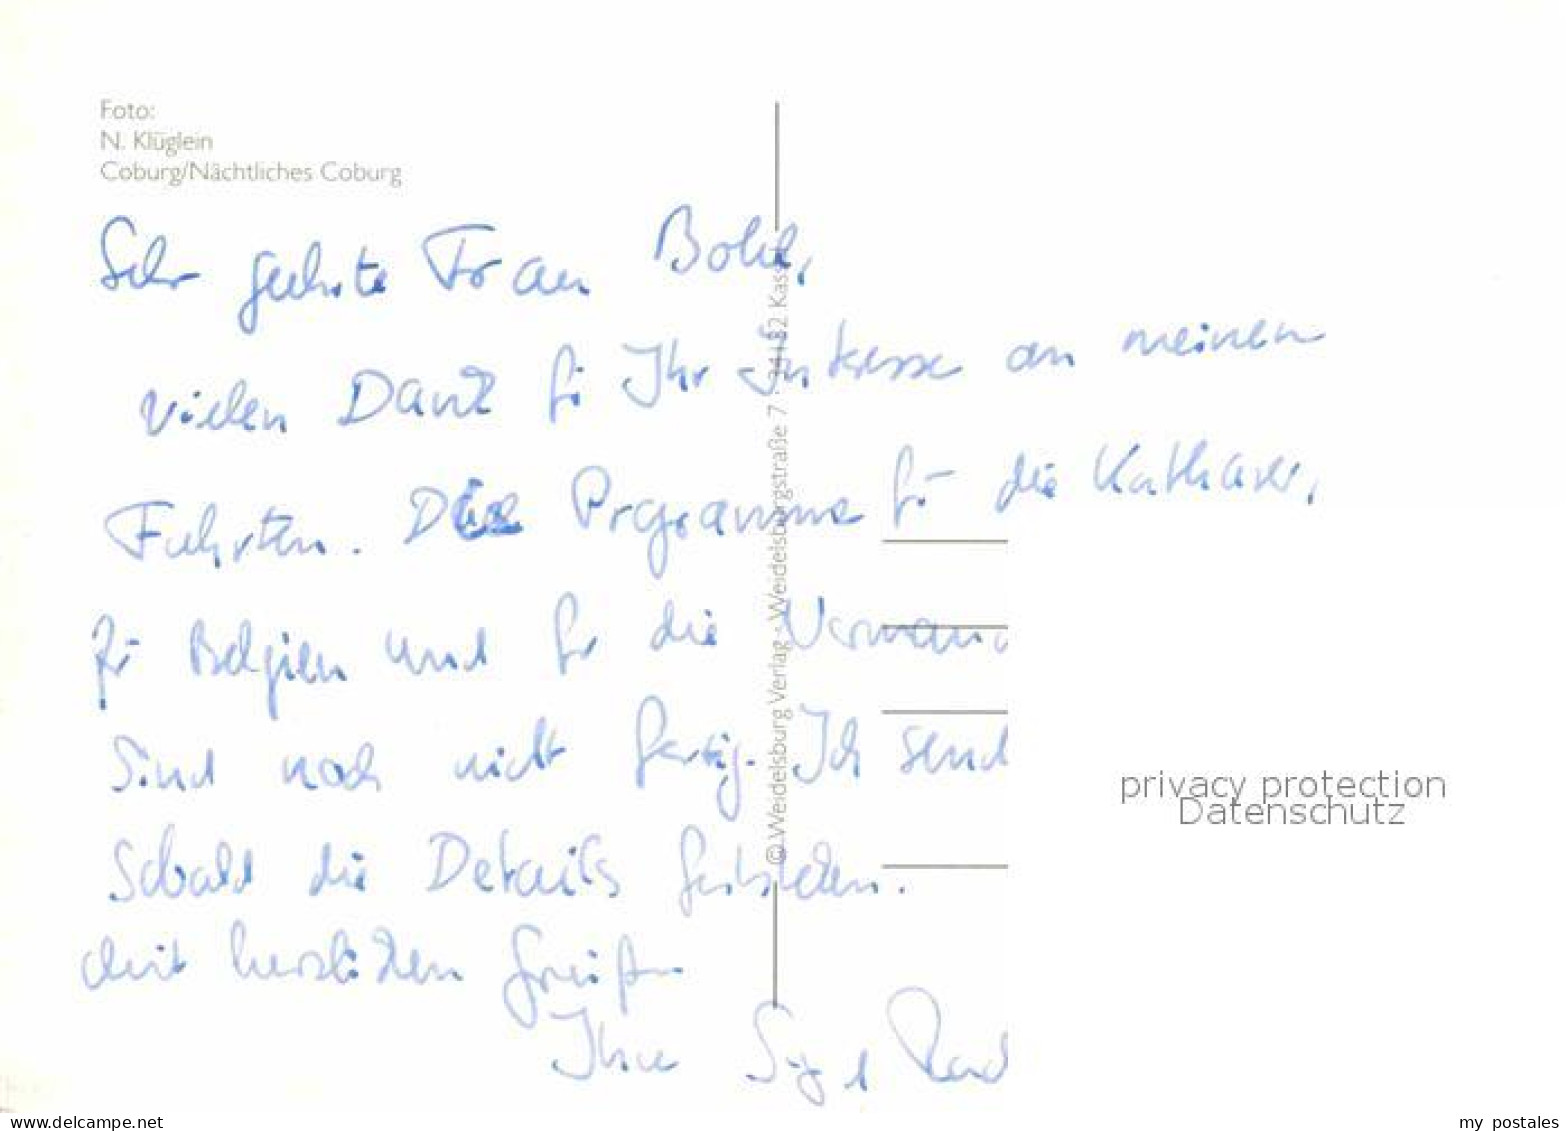 Foto:
N. Klüglein
Coburg/Nächtliches Coburg
Sehr geehrte Frau
Vielen Dank für Ihr Interesse an meinen
Fuhrten. Die Programme für die Katharer,
für Belgien und für die Normand
Sind noch nicht fertig. Ich send
Sobald die Details feststehen.
Mit herzlichen Grüßen
Ihre
© Weidelsburg Verlag · Weidelsburgstraße 7 · 34132 Kassel
privacy protection
Datenschutz
www.delcampe.net
my_postales